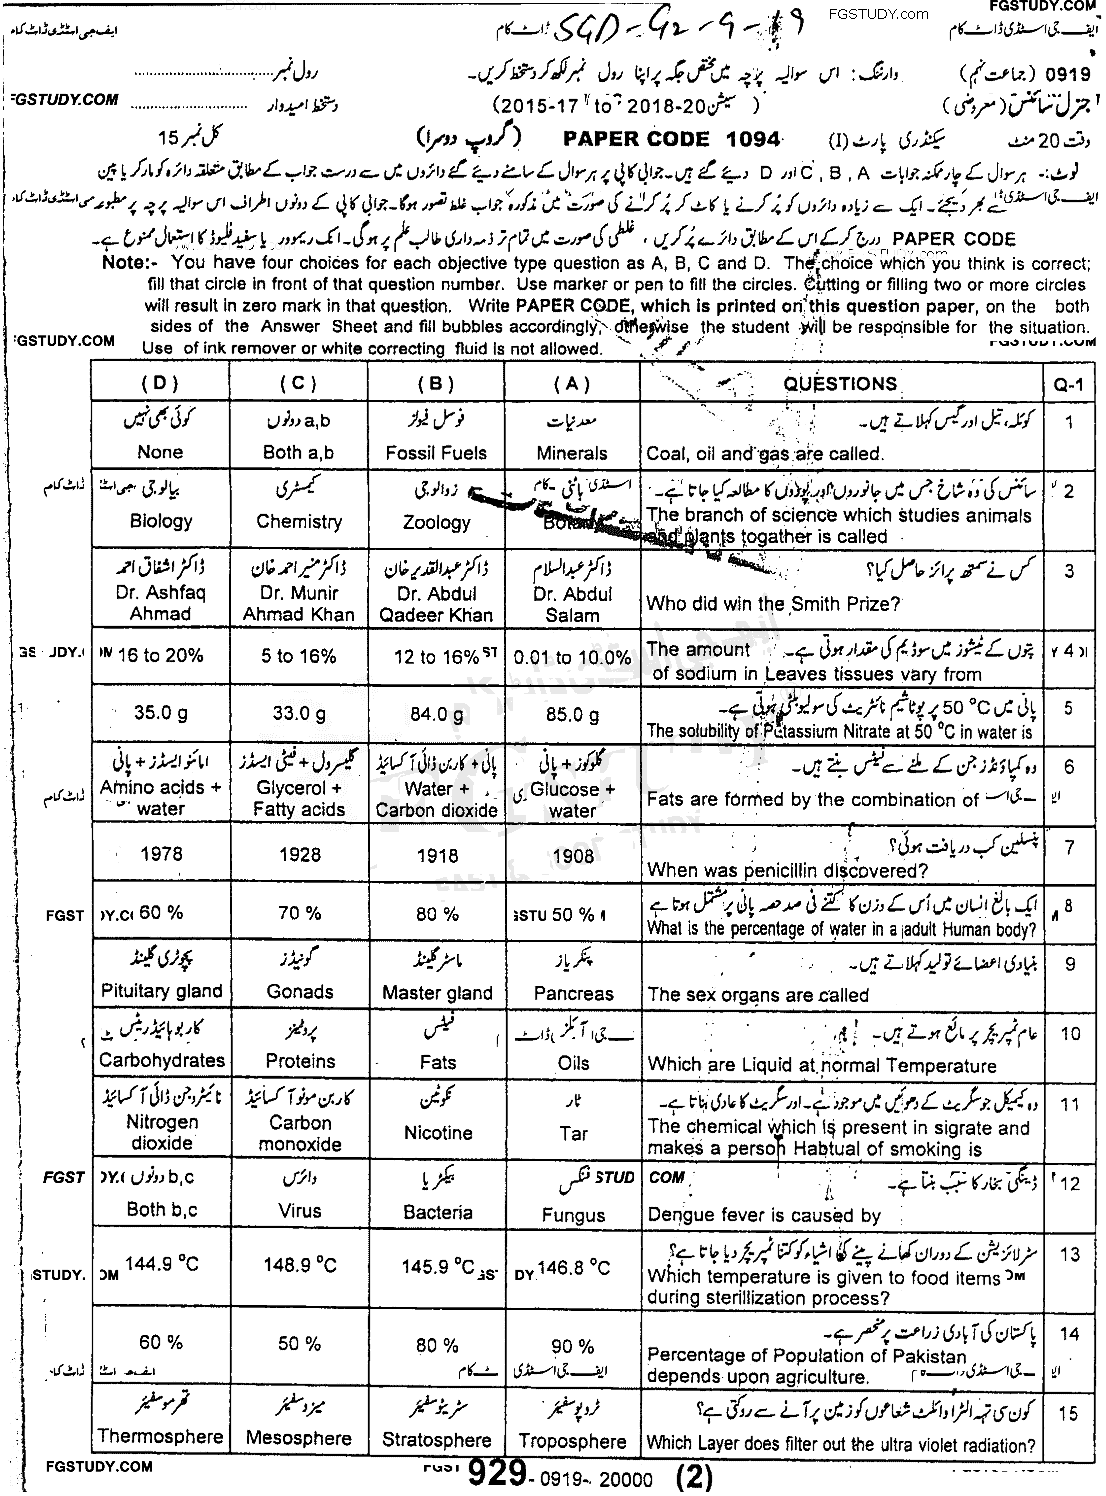 FGSTUDY.com
FGSTUDY.COM
SGD-G2-9-19
ایف جی اسٹڈی ڈاٹ کام
0919 (جماعت نہم)
وارننگ: اس سوالیہ پرچہ میں مختص جگہ پر اپنا رول نمبر لکھ کر دستخط کریں۔
رول نمبر
جنرل سائنس (معروضی)
(سیشن 2015-17 to 2018-20)
دستخط امیدوار
FGSTUDY.COM
وقت 20 منٹ
سیکنڈری پارٹ (I)
PAPER CODE 1094
(گروپ دوسرا)
کل نمبر 15
نوٹ:- ہر سوال کے چار ممکنہ جوابات A , B , C اور D دیئے گئے ہیں۔ جوابی کاپی پر ہر سوال کے سامنے دیئے گئے دائروں میں سے درست جواب کے مطابق متعلقہ دائرہ کو مارکر یا پین
سے بھر دیجئے۔ ایک سے زیادہ دائروں کو پُر کرنے یا کاٹ کر پُر کرنے کی صورت میں مذکورہ جواب غلط تصور ہوگا۔ جوابی کاپی کے دونوں اطراف اس سوالیہ پرچہ پر مطبوعہ
PAPER CODE درج کر کے اس کے مطابق دائرے پُر کریں ، غلطی کی صورت میں تمام تر ذمہ داری طالب علم پر ہوگی۔ انک ریموور یا سفید فلیوڈ کا استعمال ممنوع ہے۔
Note:- You have four choices for each objective type question as A, B, C and D. The choice which you think is correct;
fill that circle in front of that question number. Use marker or pen to fill the circles. Cutting or filling two or more circles
will result in zero mark in that question. Write PAPER CODE, which is printed on this question paper, on the both
sides of the Answer Sheet and fill bubbles accordingly, otherwise the student will be responsible for the situation.
Use of ink remover or white correcting fluid is not allowed.
FGSTUDY.COM
(D) (C) (B) (A) QUESTIONS Q-1
کوئی بھی نہیں دونوں a,b فوسل فیولز معدنیات کوئلہ، تیل اور گیس کہلاتے ہیں۔ 1
None Both a,b Fossil Fuels Minerals Coal, oil and gas are called.
بیالوجی کیمسٹری زوالوجی باٹنی سائنس کی وہ شاخ جس میں جانوروں اور پودوں کا مطالعہ کیا جاتا ہے۔ 2
Biology Chemistry Zoology Botany The branch of science which studies animals
and plants togather is called
ڈاکٹر اشفاق احمد ڈاکٹر منیر احمد خان ڈاکٹر عبدالقدیر خان ڈاکٹر عبدالسلام کس نے سمتھ پرائز حاصل کیا؟ 3
Dr. Ashfaq Ahmad Dr. Munir Ahmad Khan Dr. Abdul Qadeer Khan Dr. Abdul Salam Who did win the Smith Prize?
16 to 20% 5 to 16% 12 to 16% 0.01 to 10.0% The amount پتوں کے ٹیشوز میں سوڈیم کی مقدار ہوتی ہے۔ 4
of sodium in Leaves tissues vary from
35.0 g 33.0 g 84.0 g 85.0 g پانی میں 50 °C پر پوٹاشیم نائٹریٹ کی سولیوبلٹی ہوتی ہے۔ 5
The solubility of Potassium Nitrate at 50 °C in water is
امائنو ایسڈز + پانی گلیسرول + فیٹی ایسڈز پانی + کاربن ڈائی آکسائیڈ گلوکوز + پانی وہ کمپاؤنڈز جن کے ملنے سے فیٹس بنتے ہیں۔ 6
Amino acids + water Glycerol + Fatty acids Water + Carbon dioxide Glucose + water Fats are formed by the combination of
1978 1928 1918 1908 پنسلین کب دریافت ہوئی؟ 7
When was penicillin discovered?
60 % 70 % 80 % 50 % ایک بالغ انسان میں اُس کے وزن کا کتنے فی صد حصہ پانی پر مشتمل ہوتا ہے 8
What is the percentage of water in a adult Human body?
پچوٹری گلینڈ گونیڈز ماسٹر گلینڈ پنکریاز بنیادی اعضائے تولید کہلاتے ہیں۔ 9
Pituitary gland Gonads Master gland Pancreas The sex organs are called
کاربوہائیڈریٹس پروٹینز فیٹس آئلز عام ٹمپریچر پر مائع ہوتے ہیں۔ 10
Carbohydrates Proteins Fats Oils Which are Liquid at normal Temperature
نائیٹروجن ڈائی آکسائیڈ کاربن مونو آکسائیڈ نکوٹین ٹار وہ کیمیکل جو سگریٹ کے دھوئیں میں موجود ہے۔ اور سگریٹ کا عادی بناتا ہے۔ 11
Nitrogen dioxide Carbon monoxide Nicotine Tar The chemical which is present in sigrate and
makes a person Habtual of smoking is
دونوں b,c وائرس بیکٹریا فنگس ڈینگی بخار کا سبب بنتا ہے۔ 12
Both b,c Virus Bacteria Fungus Dengue fever is caused by
144.9 °C 148.9 °C 145.9 °C 146.8 °C سٹرلائزیشن کے دوران کھانے پینے کی اشیاء کو کتنا ٹمپریچر دیا جاتا ہے؟ 13
Which temperature is given to food items
during sterillization process?
60 % 50 % 80 % 90 % پاکستان کی آبادی زراعت پر منحصر ہے۔ 14
Percentage of Population of Pakistan
depends upon agriculture.
تھرموسفیئر میزوسفیئر سٹریٹوسفیئر ٹروپوسفیئر کون سی تہہ الٹرا وائلٹ شعاعوں کو زمین پر آنے سے روکتی ہے؟ 15
Thermosphere Mesosphere Stratosphere Troposphere Which Layer does filter out the ultra violet radiation?
FGSTUDY.COM
929-0919-20000 (2)